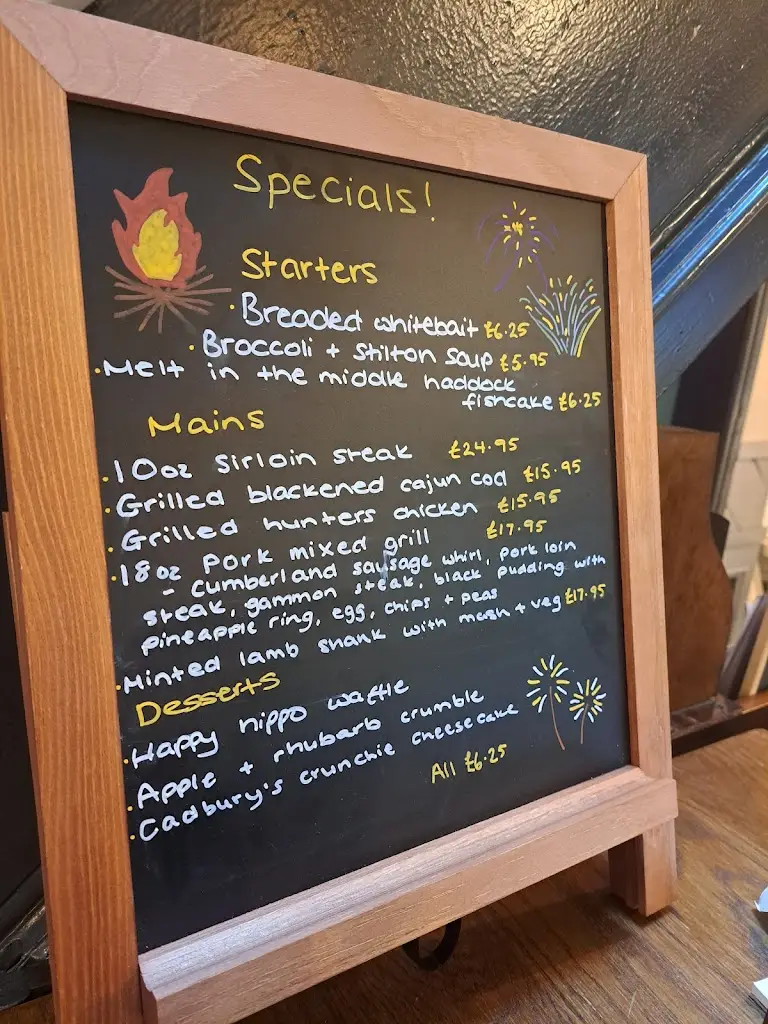 Specials!
Starters
· Breaded whitebait £6.25
· Broccoli + stilton soup £5.95
· Melt in the middle haddock
fishcake £6.25
Mains
· 10oz sirloin steak £24.95
· Grilled blackened cajun cod £15.95
· Grilled hunters chicken £15.95
· 18oz pork mixed grill £17.95
- cumberland sausage whirl, pork loin
steak, gammon steak, black pudding with
pineapple ring, egg, chips + peas
· Minted lamb shank with mash + veg £17.95
Desserts
· Happy hippo waffle
· Apple + rhubarb crumble
· Cadbury's crunchie cheesecake
All £6.25